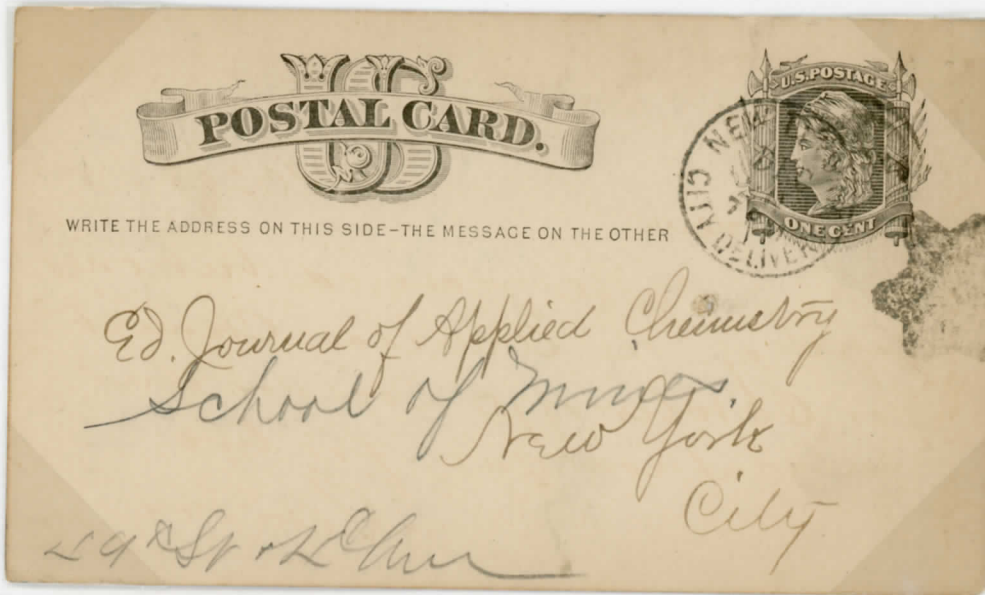 US
POSTAL CARD.
U.S. POSTAGE
ONE CENT
NEW
CITY DELIVER
WRITE THE ADDRESS ON THIS SIDE-THE MESSAGE ON THE OTHER
Ed. Journal of Applied Chemistry
School of Mines,
New York
City
49th St